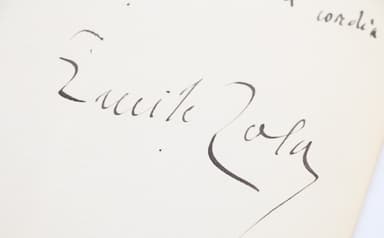 cordia
Émile Zola